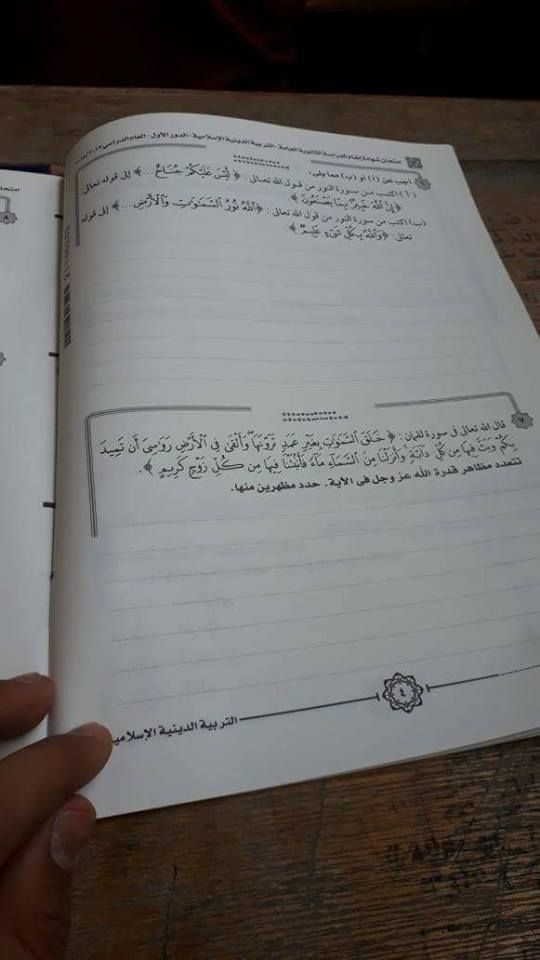 امتحان شهادة إتمام الدراسة الثانوية العامة - التربية الدينية الإسلامية - الدور الأول - العام الدراسى
أجب عن (أ) أو (ب) مما يلى:
(أ) اكتب من سورة النور من قول الله تعالى: ﴿ لَّيْسَ عَلَيْكُمْ جُنَاحٌ ... ﴾ إلى قوله تعالى
﴿ إِنَّ اللَّهَ خَبِيرٌ بِمَا يَصْنَعُونَ ﴾
(ب) اكتب من سورة النور من قول الله تعالى: ﴿ اللَّهُ نُورُ السَّمَاوَاتِ وَالْأَرْضِ ... ﴾ إلى قوله
تعالى: ﴿ وَاللَّهُ بِكُلِّ شَيْءٍ عَلِيمٌ ﴾
٧
قال الله تعالى فى سورة لقمان: ﴿ خَلَقَ السَّمَاوَاتِ بِغَيْرِ عَمَدٍ تَرَوْنَهَا وَأَلْقَىٰ فِي الْأَرْضِ رَوَاسِيَ أَن تَمِيدَ
بِكُمْ وَبَثَّ فِيهَا مِن كُلِّ دَابَّةٍ وَأَنزَلْنَا مِنَ السَّمَاءِ مَاءً فَأَنبَتْنَا فِيهَا مِن كُلِّ زَوْجٍ كَرِيمٍ ﴾.
تتعدد مظاهر قدرة الله عز وجل فى الآية. حدد مظهرين منها.
٤
التربية الدينية الإسلامي